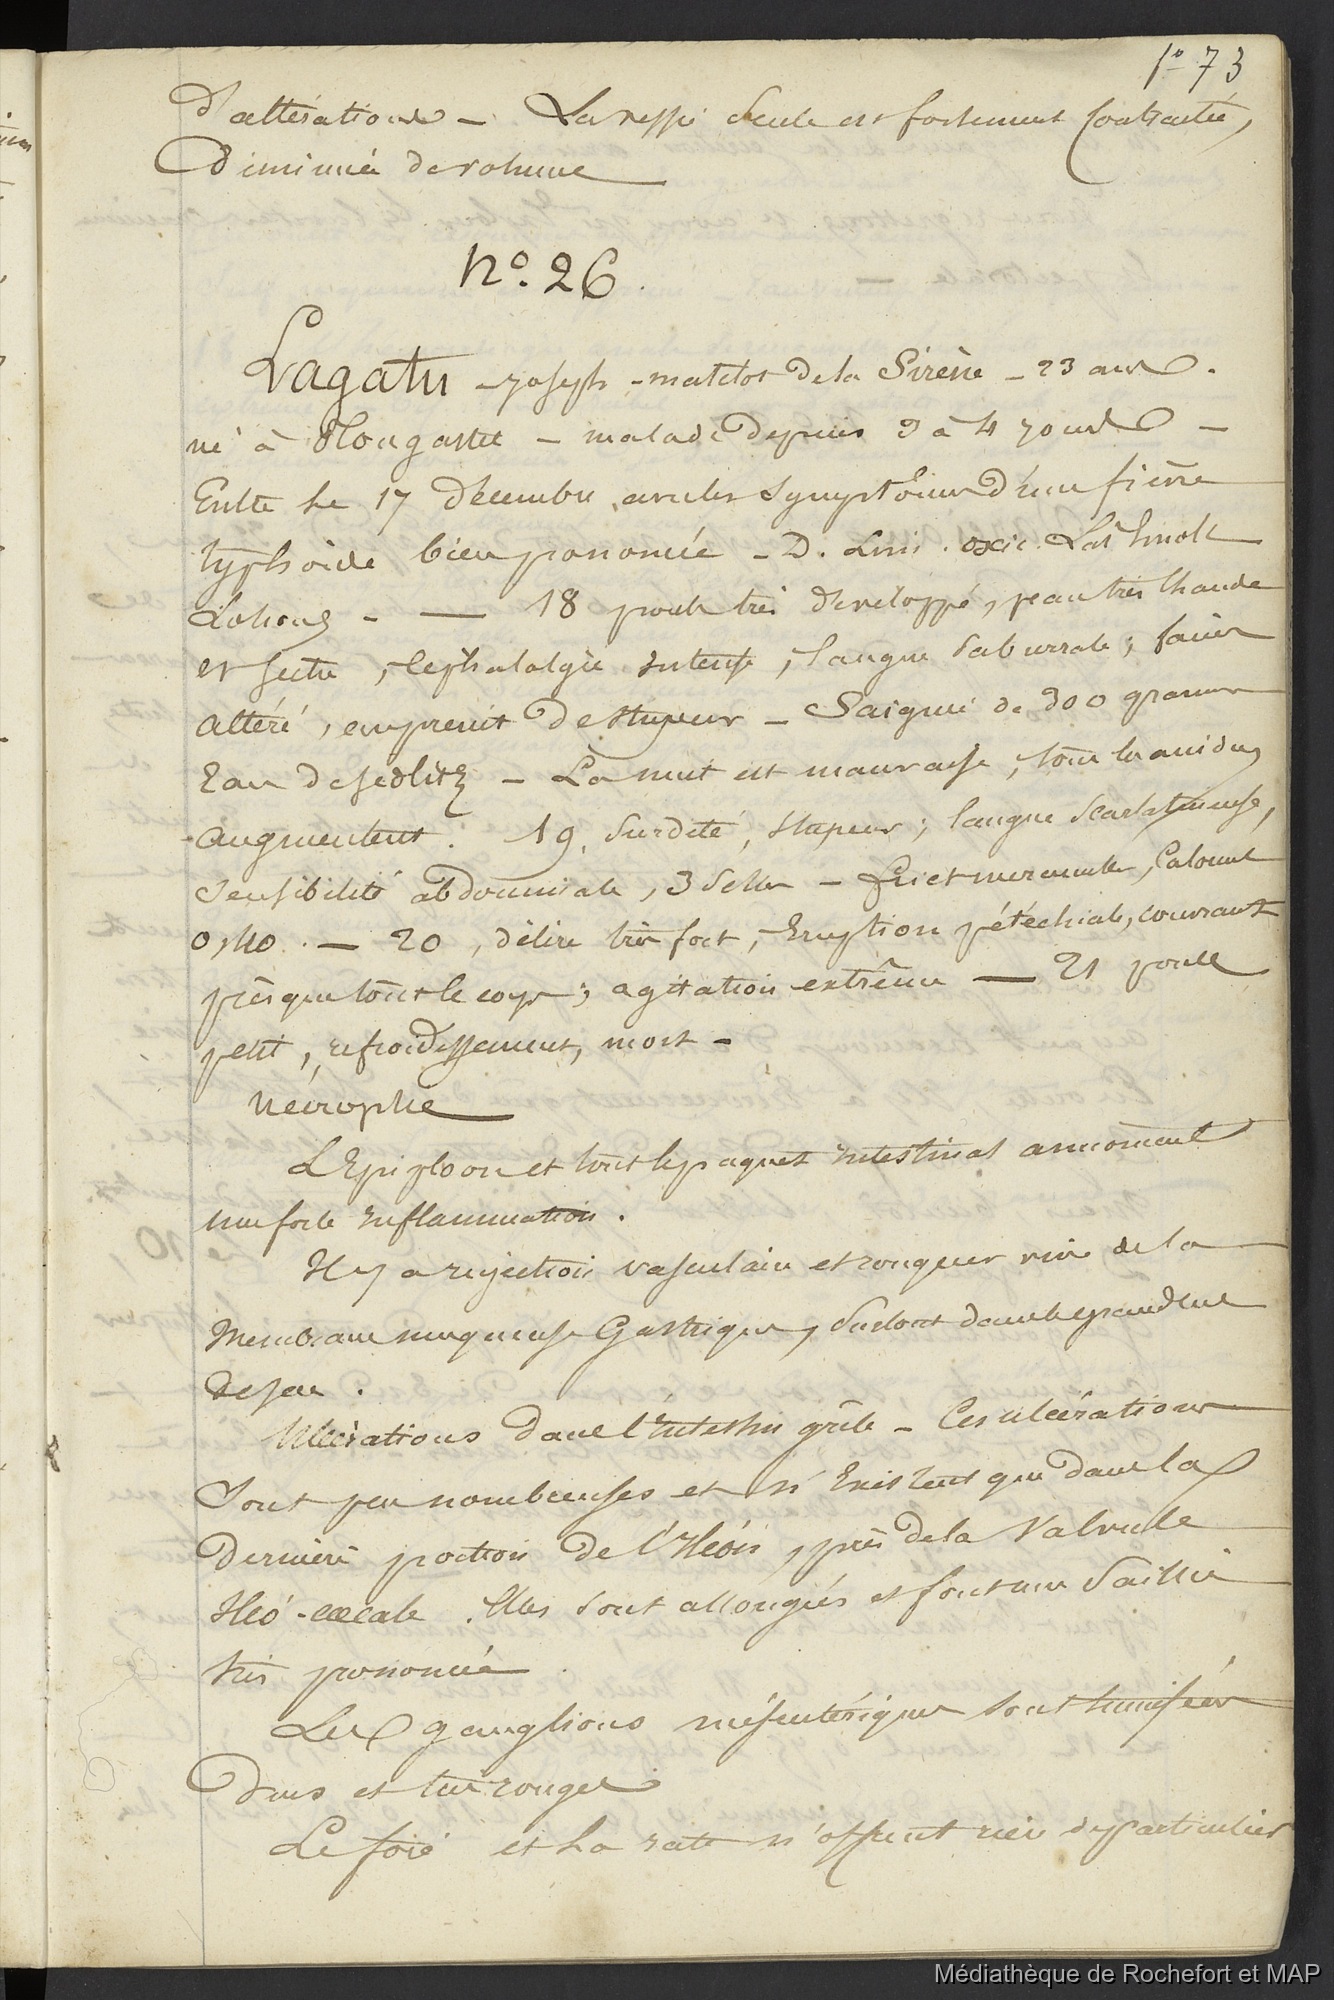 fo 73
d'altérations – La vessie seule est fortement contractée,
diminuée de volume
No. 26.
Lagatu – joseph – matelot de la Sirène – 23 ans.
né à Plougastel – malade depuis 3 à 4 jours –
Entre le 17 décembre, avec les symptômes d'une fièvre
typhoïde bien prononcée – D. Limo.
18 pouls très développé, peau très chaude
et seche, céphalalgie intense, langue saburrale; faciès
altéré, empreint de stupeur – Saignée de 300 grammes
Eau de sedlitz – La nuit est mauvaise, tous les accidens
augmentent. 19, surdité, stupeur; langue scarlatineuse,
sensibilité abdominale, 3 selles – frict mercurielles, Calomel
0,40. – 20, délire très fort, Eruption pétéchiale, couvrant
presque tout le corps; agitation extrême – 21 pouls
petit, refroidissement, mort –
Nécropsie
L'Epiploon et tout le paquet intestinal annoncent
une forte inflammation.
Il y a injection vasculaire et rougeur vive de la
Membrane muqueuse Gastrique, surtout dans le grand cul
de sac.
Ulcérations dans l'intestin grêle – Ces ulcérations
sont peu nombreuses et n'Existent que dans la
dernière portion de l'Iléon, près de la Valvule
Iléo-cœcale. Elles sont allongées et font une saillie
très prononcée
Les ganglions mésentériques sont tuméfiés
durs et très rouges
Le foie et la rate n'offrent rien de particulier
Médiathèque de Rochefort et MAP